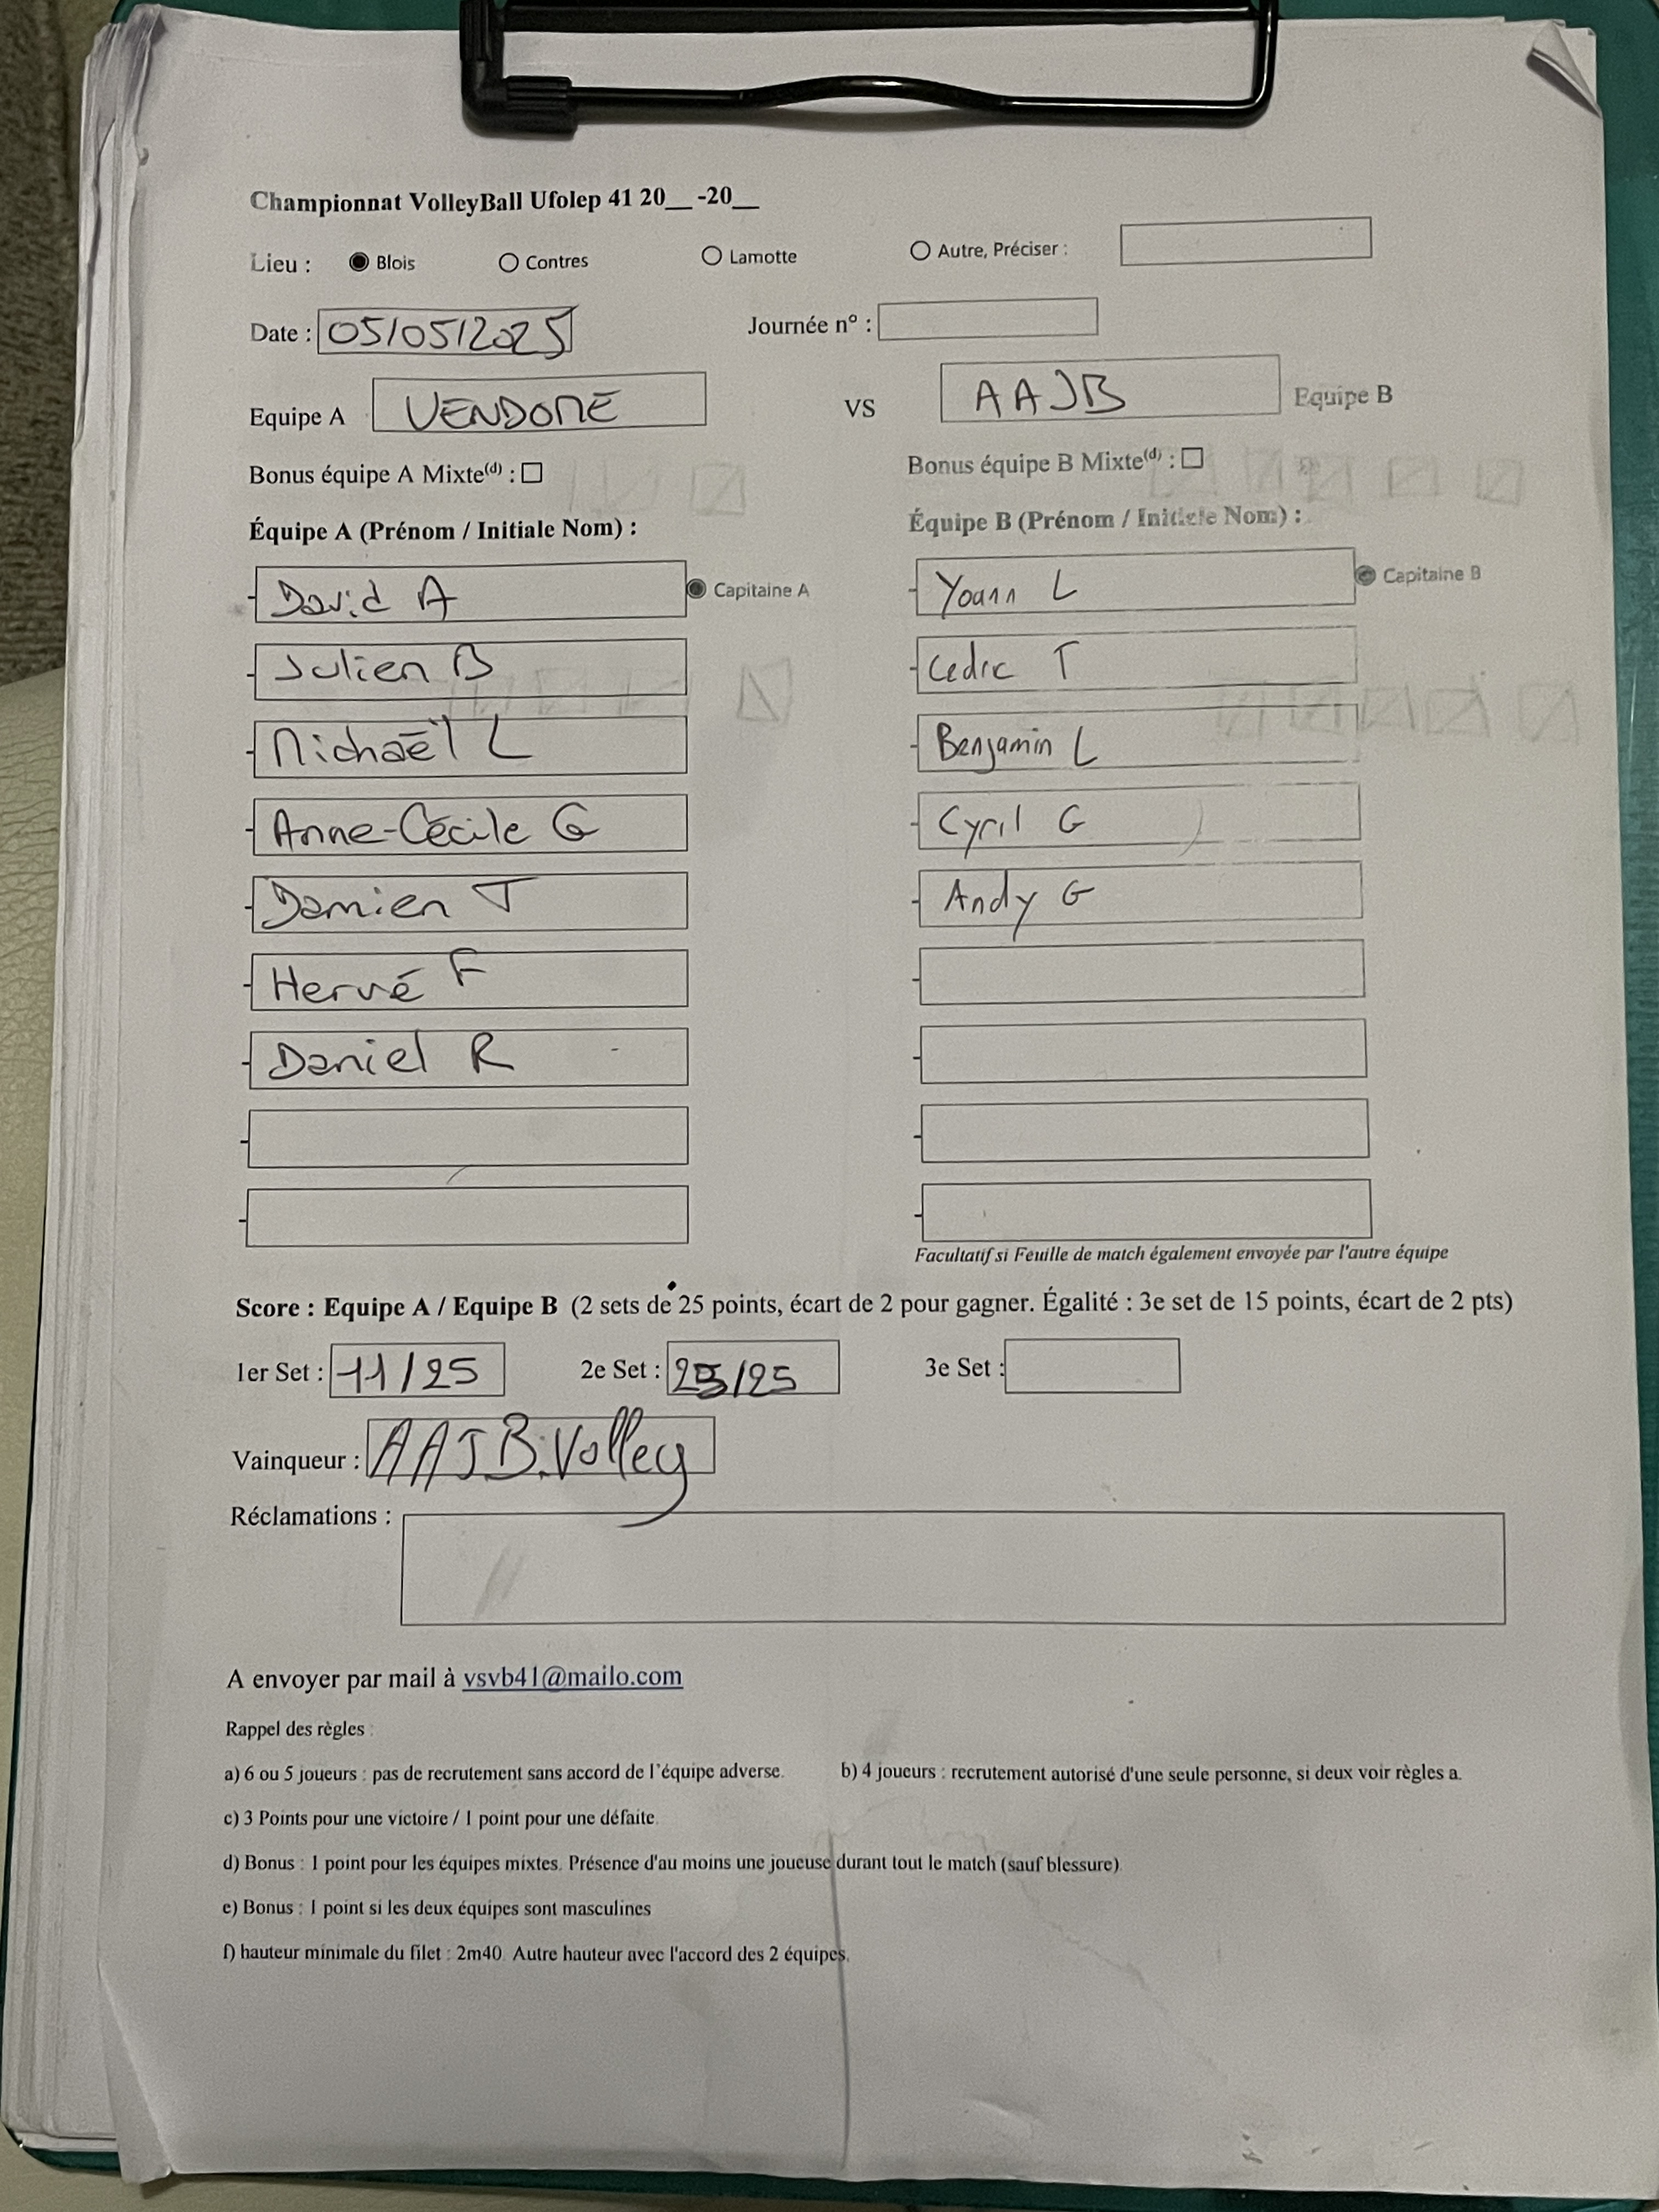 Championnat VolleyBall Ufolep 41 20__ -20__
Lieu : Blois Contres Lamotte Autre, Préciser :
Date : 05/05/2025 Journée n° :
Equipe A VENDOME VS AAJB Equipe B
Bonus équipe A Mixte(d) : Bonus équipe B Mixte(d) :
Équipe A (Prénom / Initiale Nom) : Équipe B (Prénom / Initiale Nom) :
- David A Capitaine A - Yoann L Capitaine B
- Julien B - Cedric T
- Michaël L - Benjamin L
- Anne-Cécile G - Cyril G
- Damien T - Andy G
- Hervé F -
- Daniel R -
- -
- -
Facultatif si Feuille de match également envoyée par l'autre équipe
Score : Equipe A / Equipe B (2 sets de 25 points, écart de 2 pour gagner. Égalité : 3e set de 15 points, écart de 2 pts)
1er Set : 11/25 2e Set : /25 3e Set :
Vainqueur : AAJB.Volley
Réclamations :
A envoyer par mail à vsvb41@mailo.com
Rappel des règles :
a) 6 ou 5 joueurs : pas de recrutement sans accord de l'équipe adverse. b) 4 joueurs : recrutement autorisé d'une seule personne, si deux voir règles a.
c) 3 Points pour une victoire / 1 point pour une défaite.
d) Bonus : 1 point pour les équipes mixtes. Présence d'au moins une joueuse durant tout le match (sauf blessure).
e) Bonus : 1 point si les deux équipes sont masculines
f) hauteur minimale du filet : 2m40. Autre hauteur avec l'accord des 2 équipes.